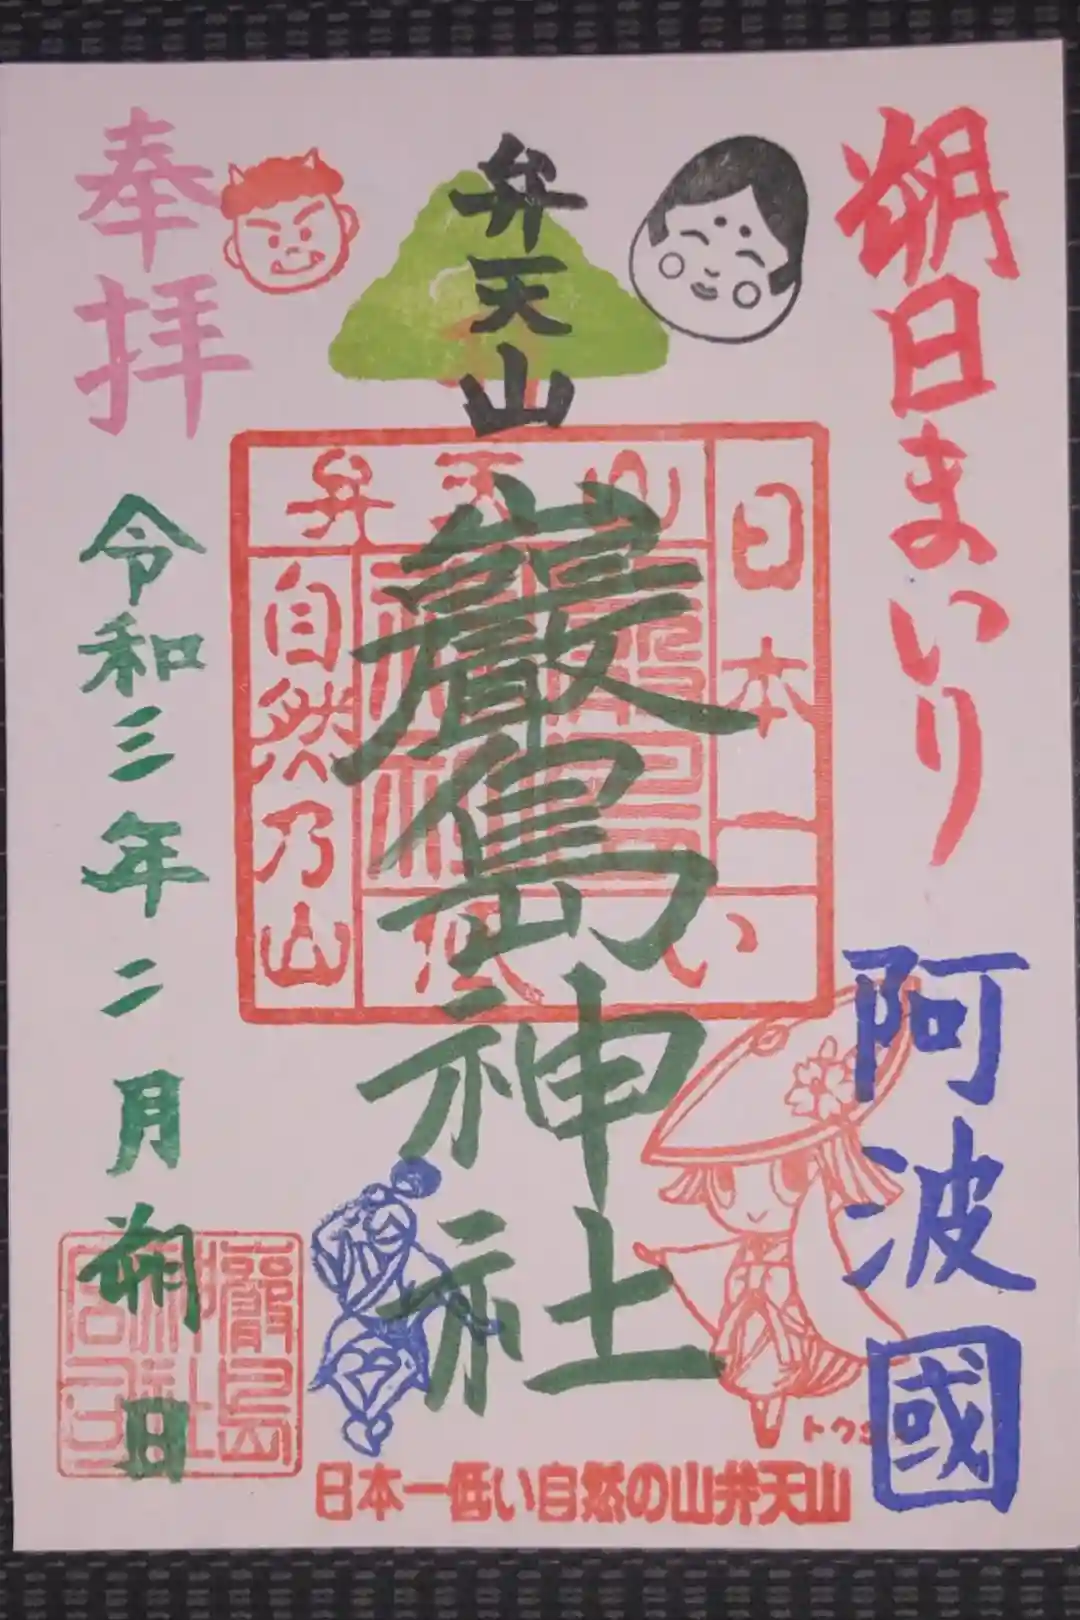 朔日まいり
阿波國
弁天山
巖島神社
奉拝
令和三年二月朔日
弁天山
日本一
低い
自然乃山
日本一低い自然の山弁天山